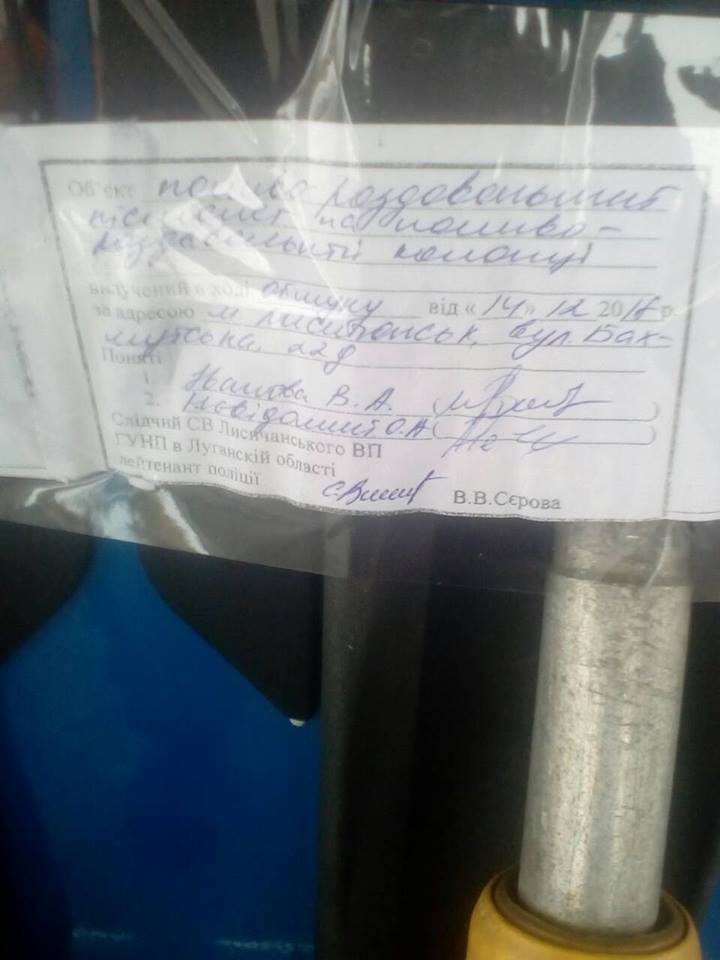 Об'єкт паливо роздавальний
пістолет на паливо-
роздавальній колонці
вилучений в ході обшуку від «14» 12 2018 р.
за адресою м. Лисичанськ, бул. Бах-
мутська, 22д
Поняті
1. В. А.
2. О.А
Слідчий СВ Лисичанського ВП
ГУНП в Луганскій області
лейтенант поліції
В.В.Сєрова